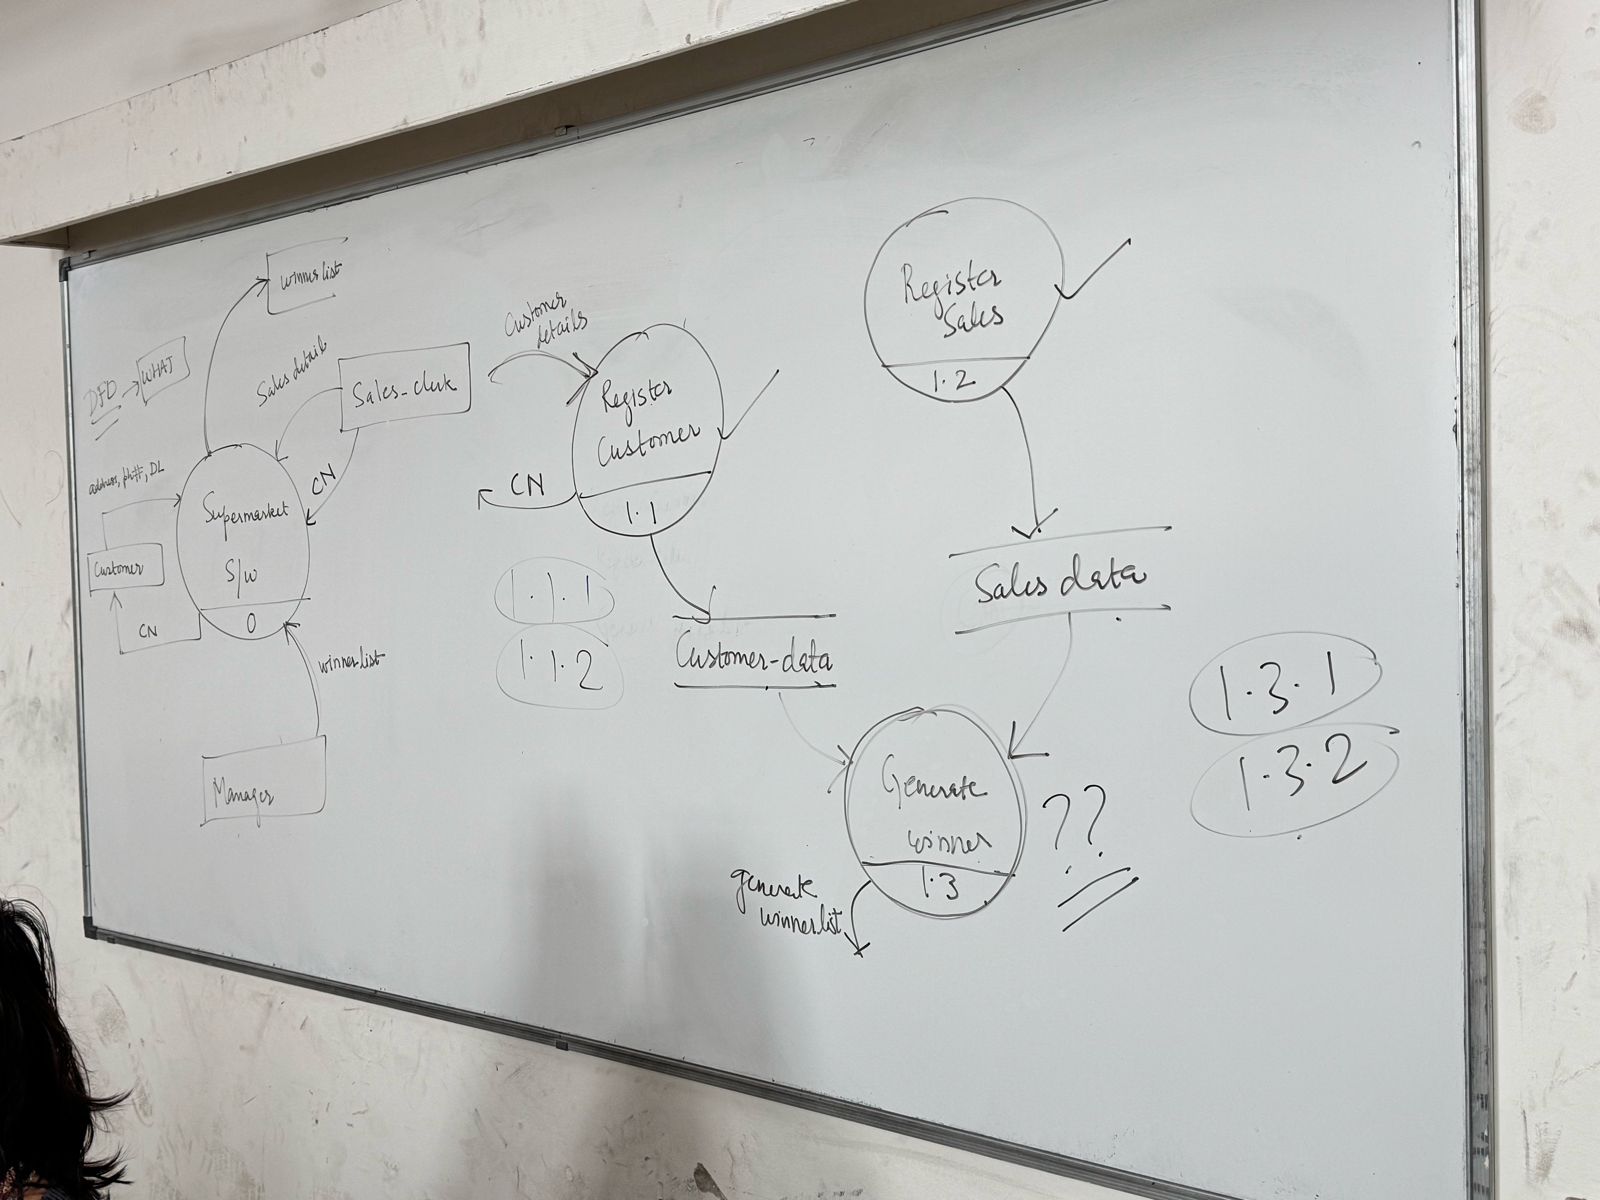 winner list
DFD → WHAT
Sales details
Sales-clerk
CN
address, ph#, DL
Supermarket
S/w
0
Customer
CN
winner list
Manager
Customer
details
Register
Customer
1.1
CN
1.1.1
1.1.2
Customer-data
Register
Sales
1.2
Sales data
Generate
winner
1.3
??
generate
winner list
1.3.1
1.3.2